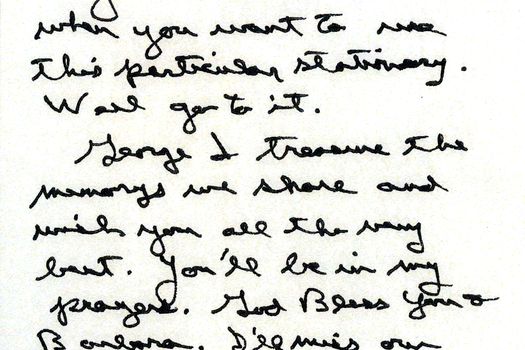 when you want to use
this particular stationary.
Well go to it.
George I treasure the
memorys we share and
wish you all the very
best. You'll be in my
prayers. God Bless You &
Barbara. I'll miss our